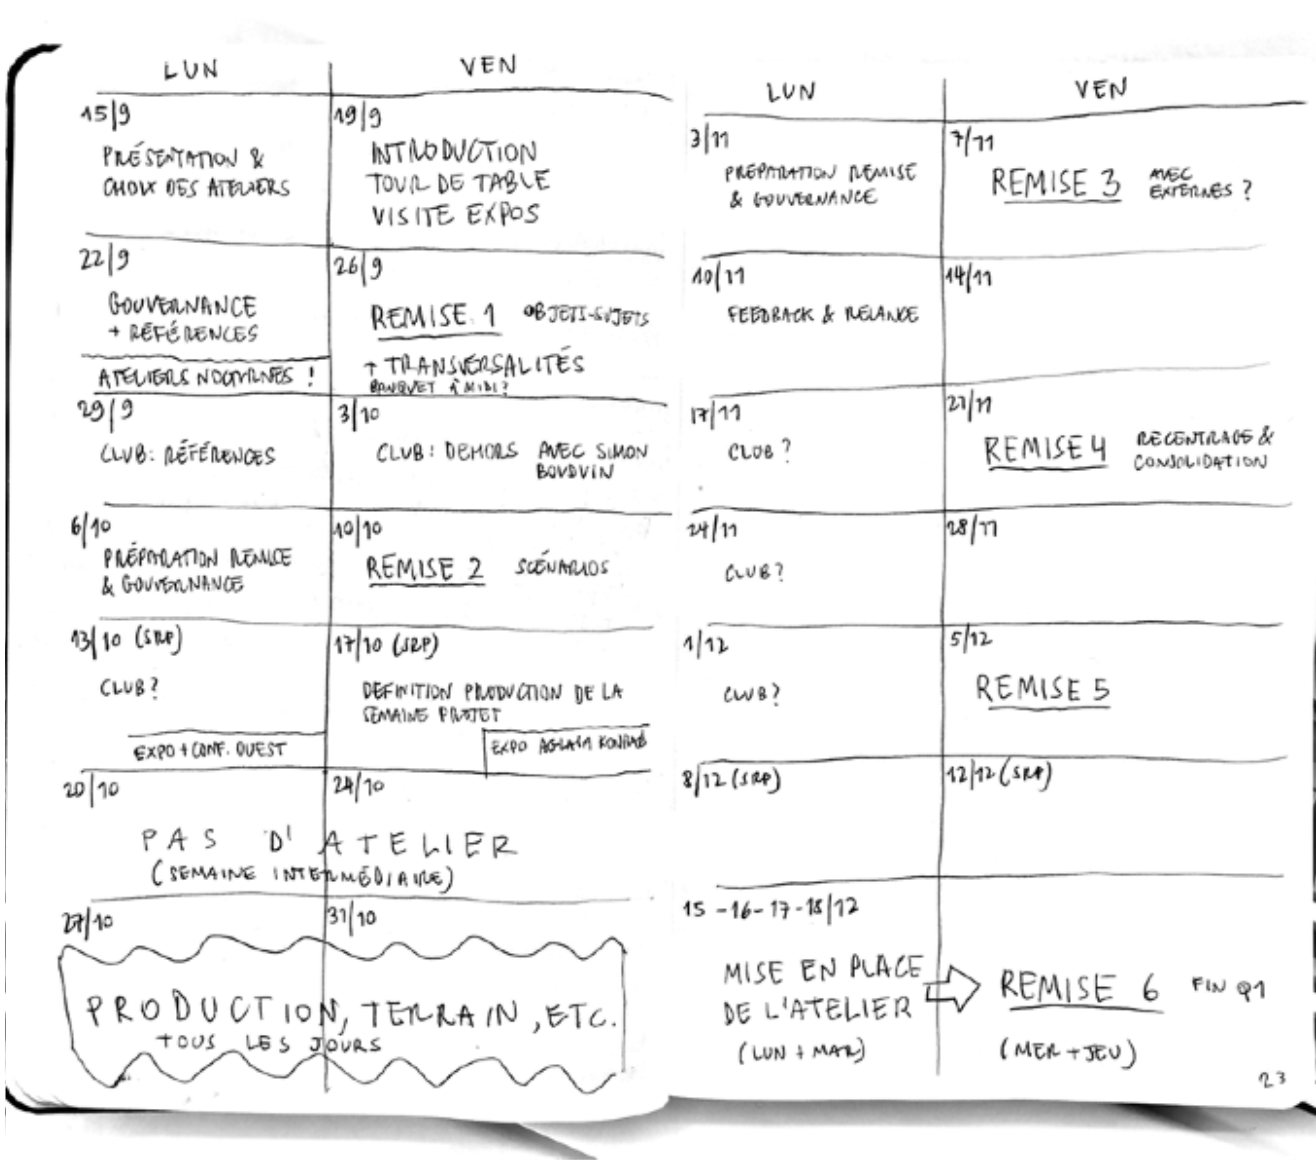 LUN
VEN
15/9
PRÉSENTATION &
CHOIX DES ATELIERS
19/9
INTRODUCTION
TOUR DE TABLE
VISITE EXPOS
22/9
GOUVERNANCE
+ RÉFÉRENCES
ATELIERS NOCTURNES !
26/9
REMISE 1 OBJETS-SUJETS
+ TRANSVERSALITÉS
BANQUET À MIDI?
29/9
CLUB: RÉFÉRENCES
3/10
CLUB: DEHORS AVEC SIMON
BOUDVIN
6/10
PRÉPARATION REMISE
& GOUVERNANCE
10/10
REMISE 2 SCÉNARIOS
13/10 (SRP)
CLUB?
EXPO + CONF. OUEST
17/10 (SRP)
DEFINITION PRODUCTION DE LA
SEMAINE PROJET
EXPO AGLAIA KONRAD
20/10
24/10
PAS D'ATELIER
(SEMAINE INTERMÉDIAIRE)
27/10
31/10
PRODUCTION, TERRAIN, ETC.
TOUS LES JOURS
LUN
VEN
3/11
PRÉPARATION REMISE
& GOUVERNANCE
7/11
REMISE 3 AVEC
EXTERNES ?
10/11
FEEDBACK & RELANCE
14/11
17/11
CLUB ?
21/11
REMISE 4 RECENTRAGE &
CONSOLIDATION
24/11
CLUB?
28/11
1/12
CLUB?
5/12
REMISE 5
8/12 (SRP)
12/12 (SRP)
15-16-17-18/12
MISE EN PLACE
DE L'ATELIER
(LUN + MAR)
REMISE 6 FIN Q1
(MER + JEU)
23